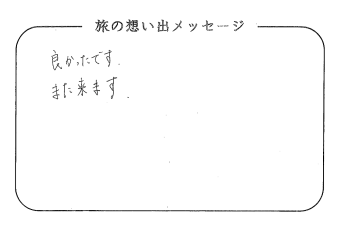 旅の想い出メッセージ
良かったです.
また来ます.